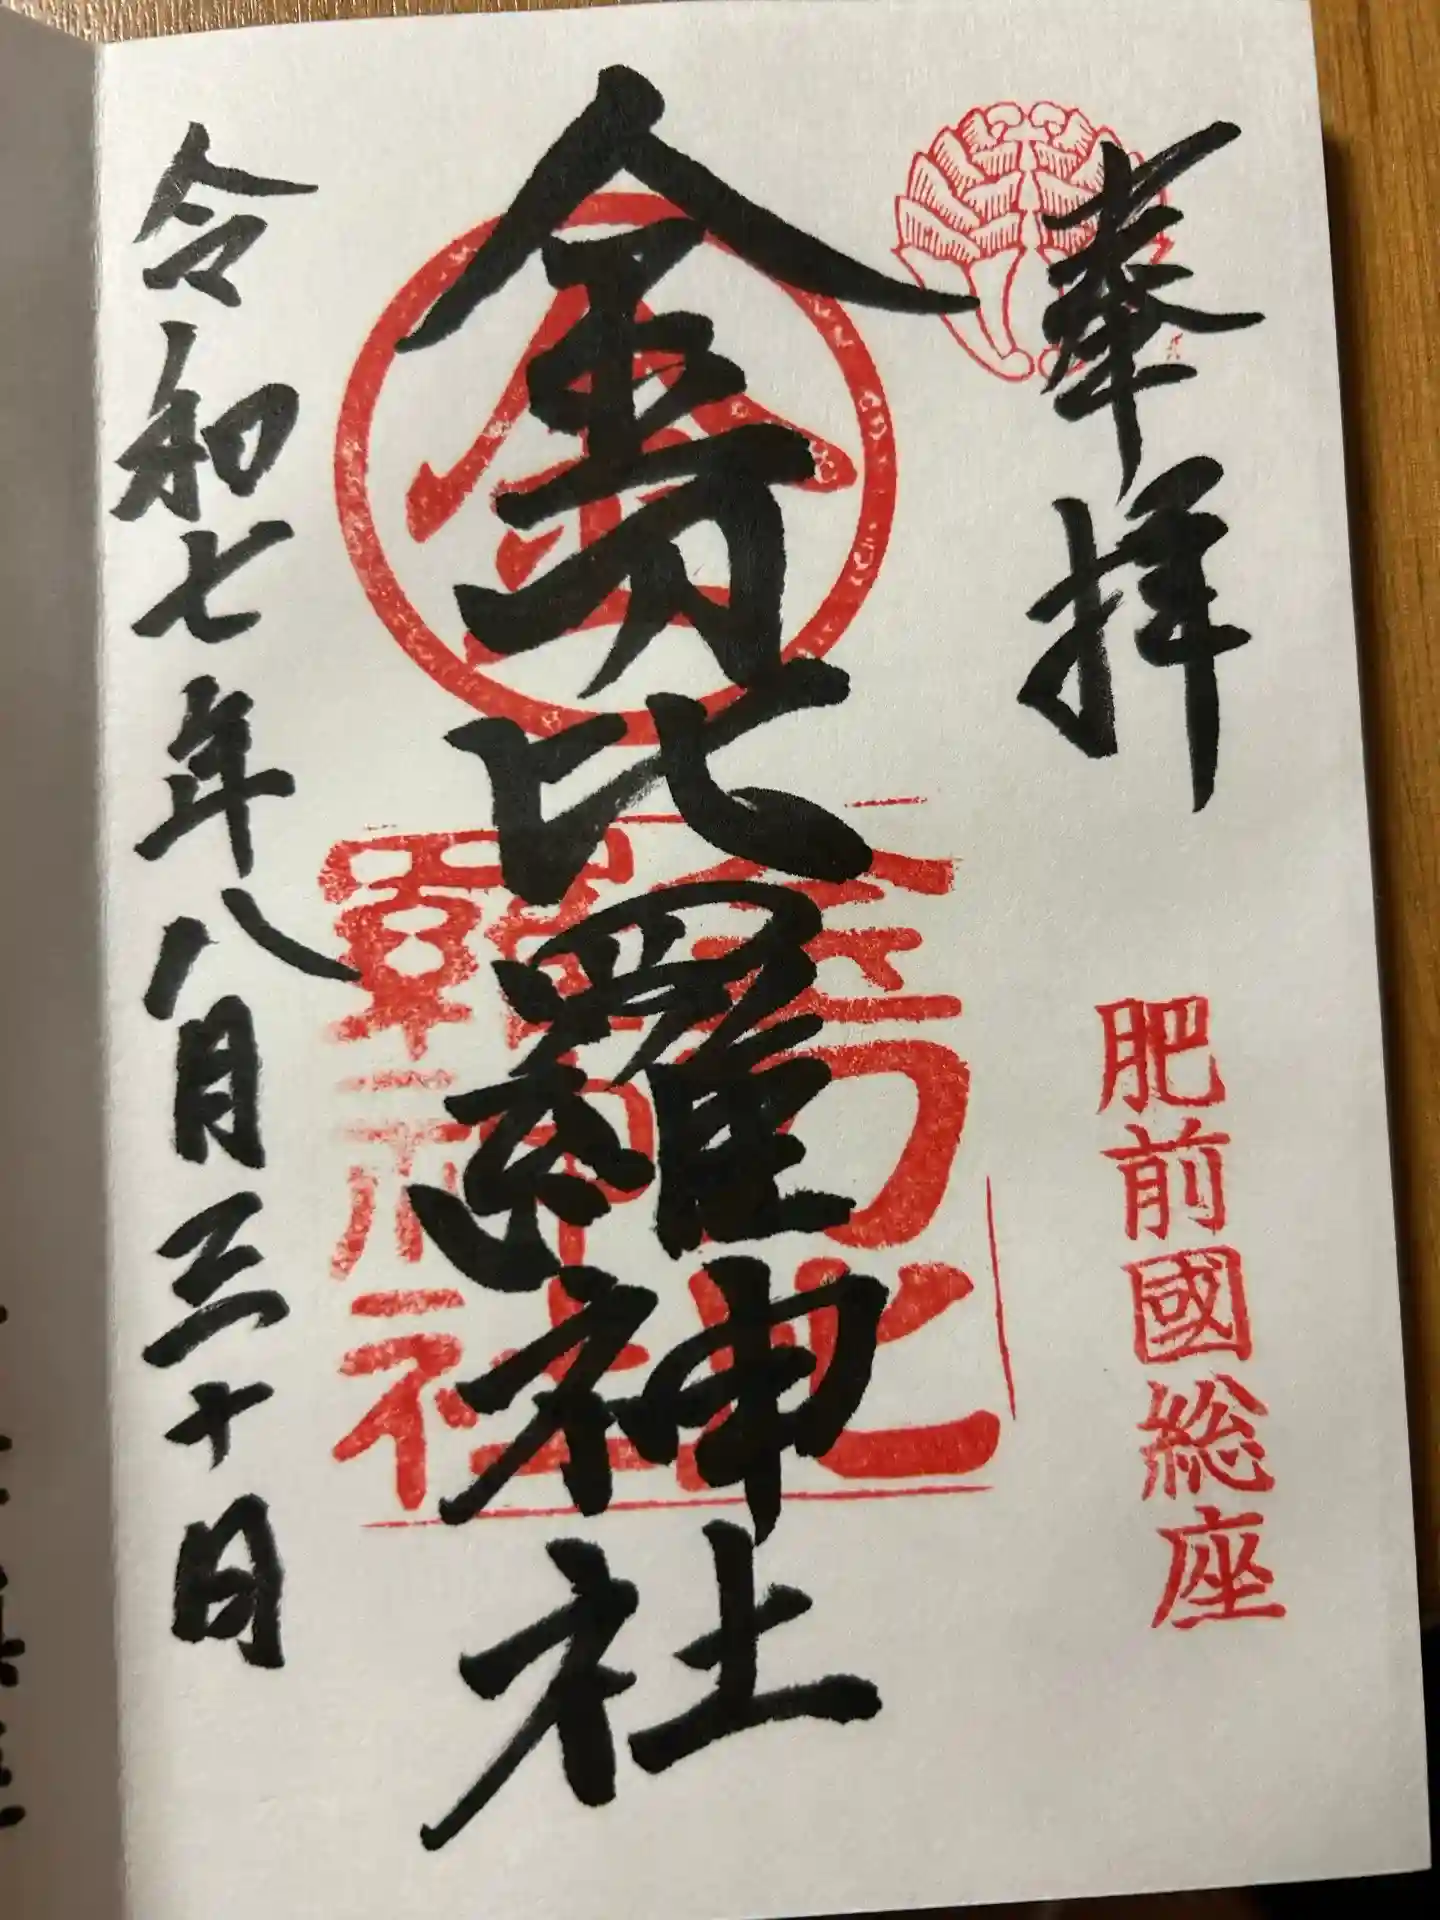 奉拝
肥前國総座
金刀比羅神社
金
令和七年八月三十日